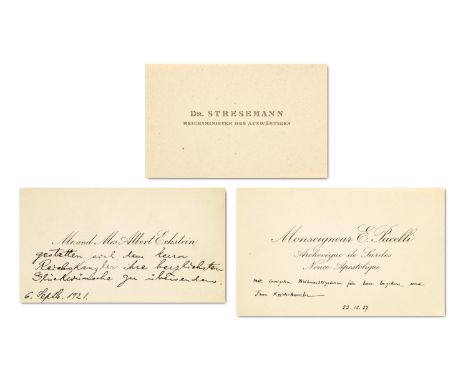 DR. STRESEMANN
REICHSMINISTER DES AUSWÄRTIGEN
Mr. and Mrs. Albert Eckstein
gestatten sich dem Herrn
Reichskanzler ihre herzlichsten
Glückwünsche zu übersenden.
6. Septb. 1921.
Monseigneur E. Pacelli
Archevêque de Sardes
Nonce Apostolique
Mit innigsten für
23.12.27